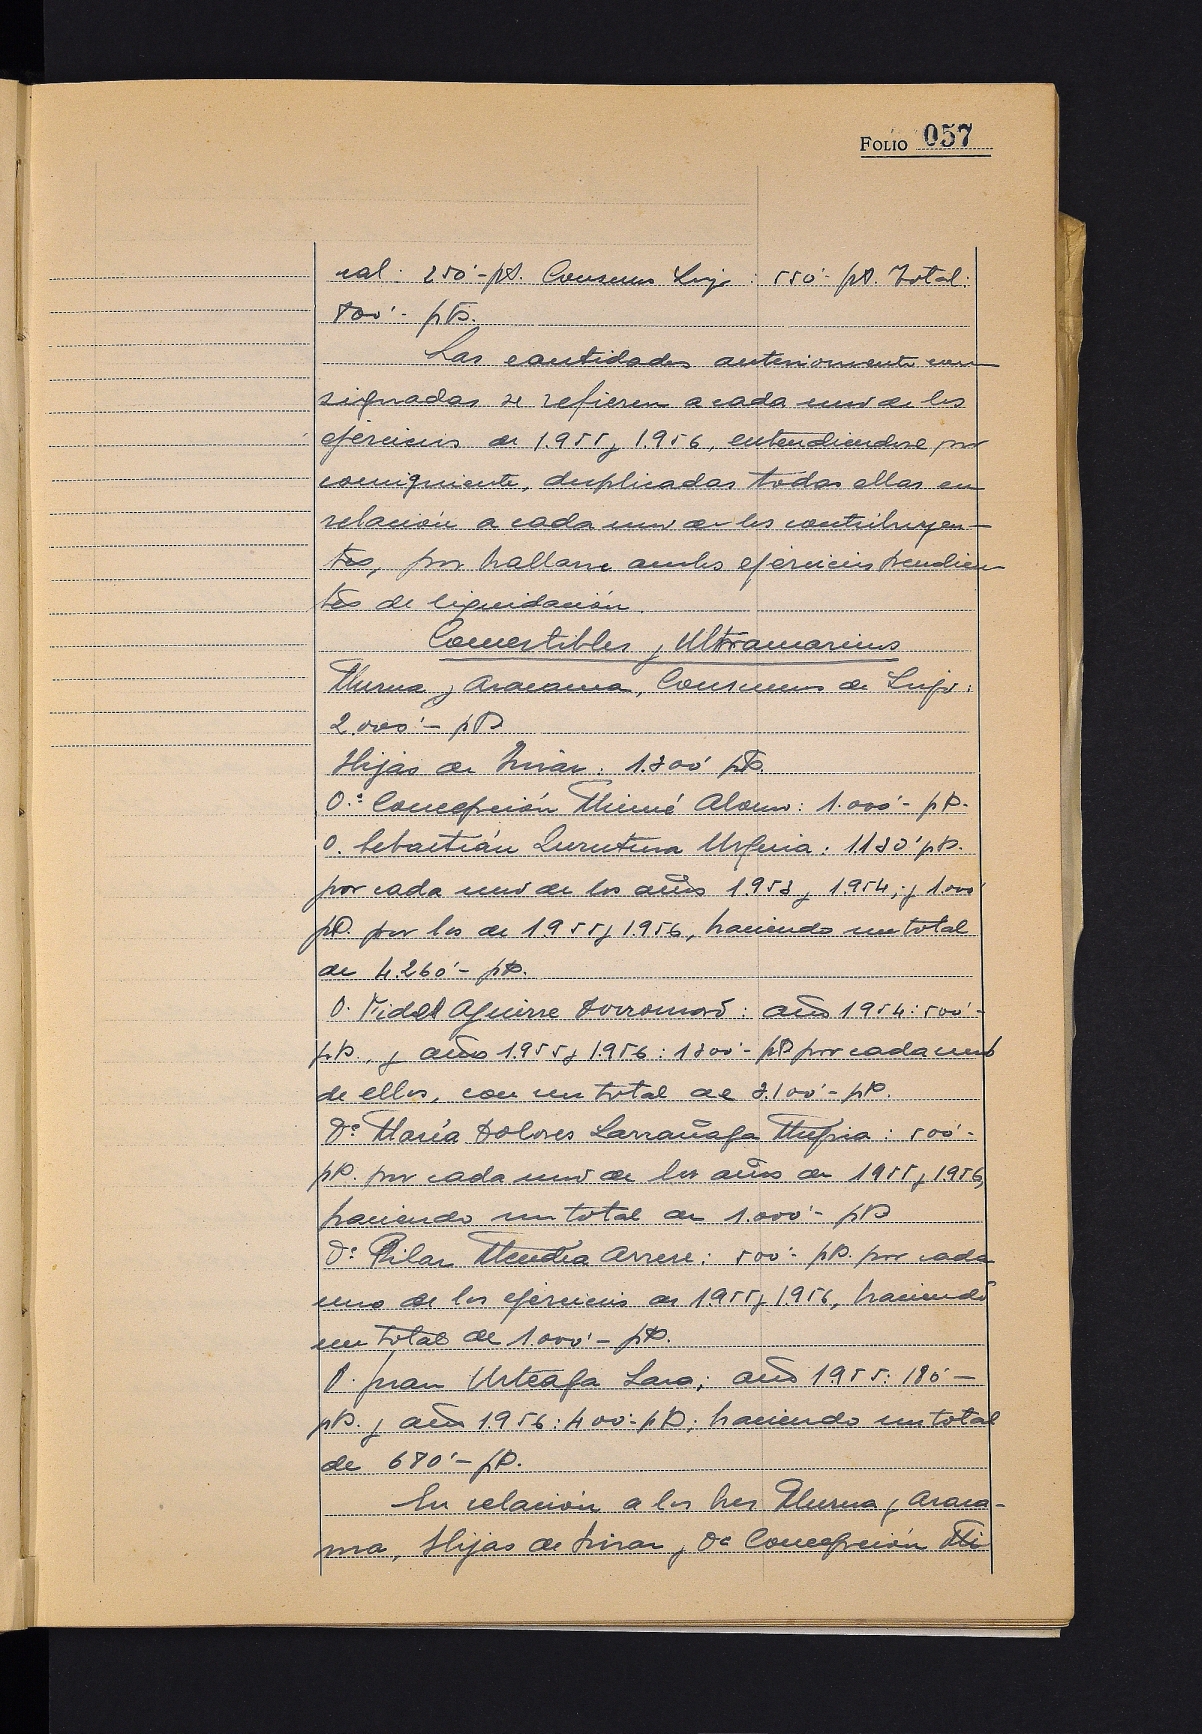 FOLIO 057
ral: 250'- pts. Consumo Lujo: 550'- pts. Total:
800'- pts.
Las cantidades anteriormente con-
signadas se refieren a cada uno de los
ejercicios de 1.955 y 1.956, entendiendose por
consiguiente, duplicadas todas ellas en
relación a cada uno de los contribuyen-
tes, por hallarse ambos ejercicios pendien-
tes de liquidación.
Comestibles y Ultramarinos
y Aracama, Consumos de Lujo:
2.000'- pts
Hijas de 1.300' pts.
D.ª Concepción Alonso: 1.000'- pts.
D. Sebastián Urquia: 1130' pts.
por cada uno de los años 1.953 y 1.954, y 1.000'
pts. por los de 1.955 y 1.956, haciendo un total
de 4.260'- pts.
D. Fidel Aguirre Dorronsoro: año 1954: 500'-
pts., y años 1.955 y 1.956: 1300'- pts por cada uno
de ellos, con un total de 3.100'- pts.
Dª María Dolores Larrañaga Mugica: 500'-
pts. por cada uno de los años de 1955 y 1956,
haciendo un total de 1.000'- pts
Dª Pilar Mendia Arrese: 500'- pts. por cada
uno de los ejercicios de 1.955 y 1.956, haciendo
un total de 1.000'- pts.
D. Juan Urteaga Lasa; año 1955: 180'-
pts. y año 1.956: 400'- pts; haciendo un total
de 680'- pts.
En relación a los tres y Araca-
ma, Hijas de y Dª Concepción Mi